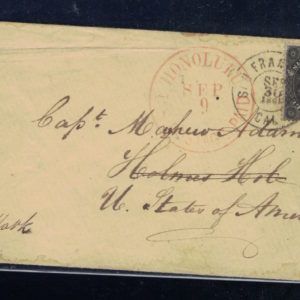 HONOLULU
SEP
9
SAN FRAN
SEP
30
1861
CAL
PAID
Capt. Mayhew Adam
Holmes Hol
U. States of Amer
York